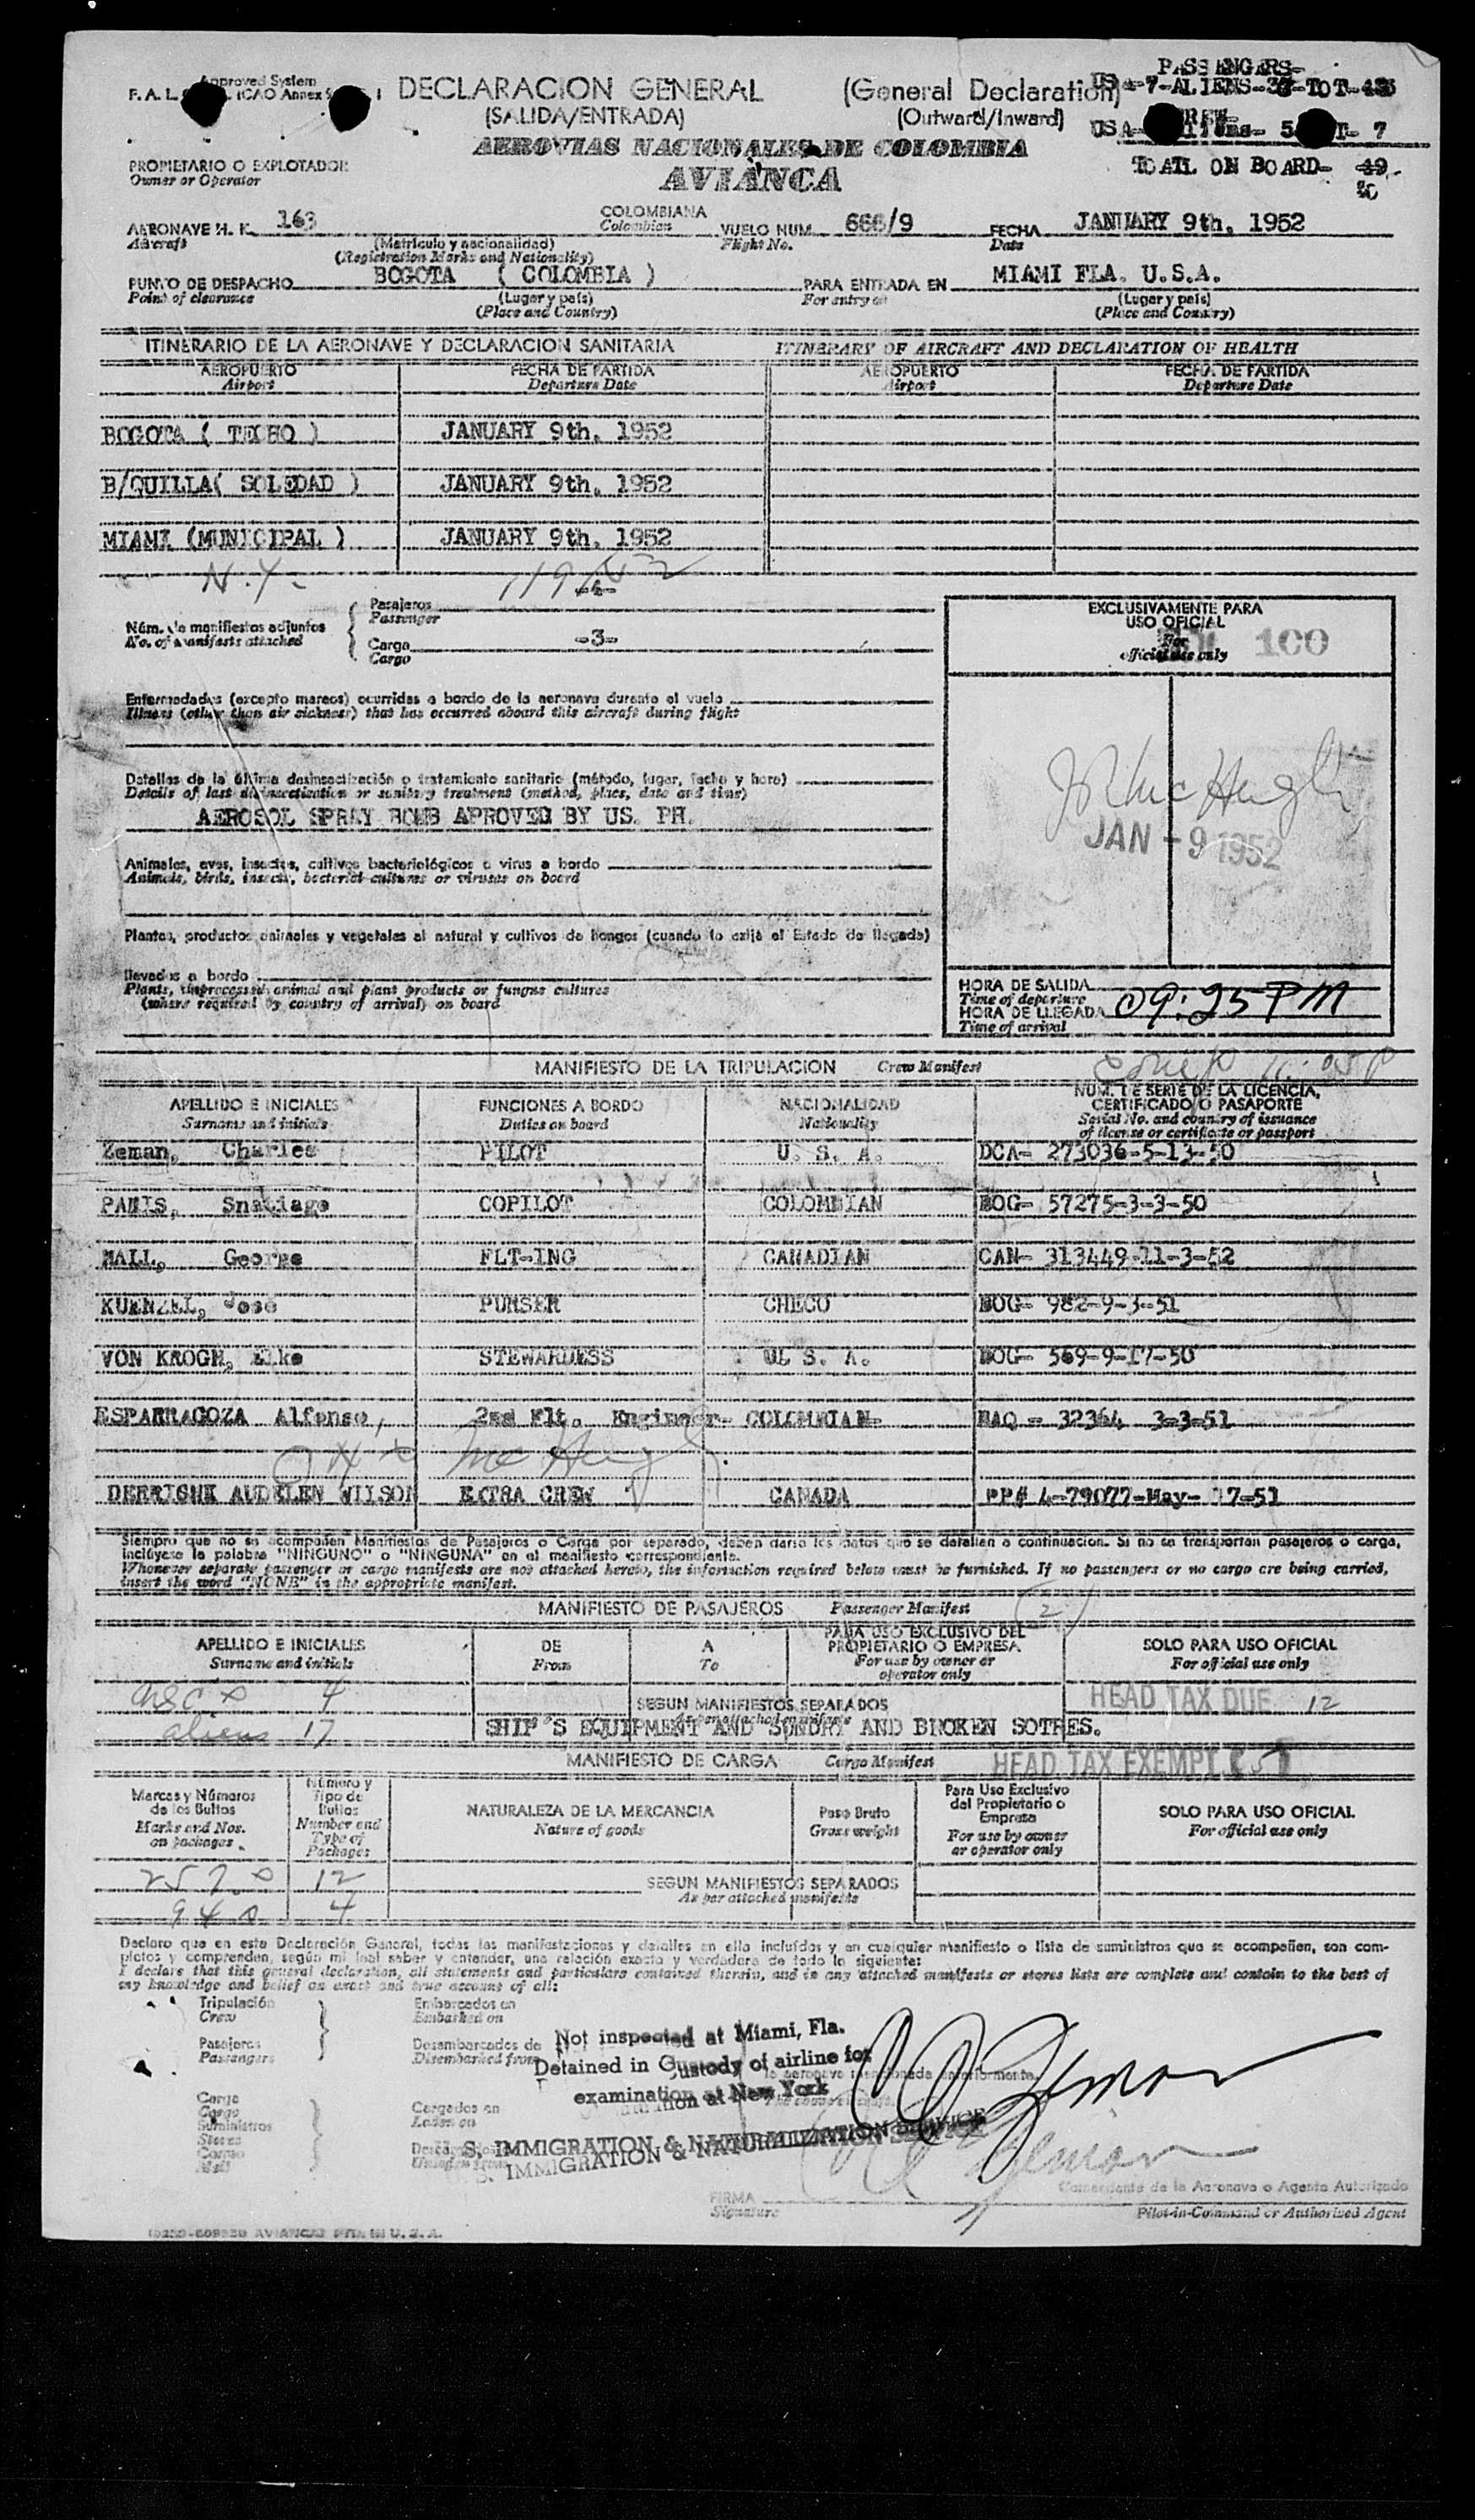 Approved System
F. A. L. ICAO Annex 9
DECLARACION GENERAL (General Declaration)
(SALIDA/ENTRADA) (Outward/Inward)
PASSENGERS-
-7-ALIENS-
USA- 5 T- 7
AEROVIAS NACIONALES DE COLOMBIA
AVIANCA
TOATL ON BOARD- 49
PROPIETARIO O EXPLOTADOR
Owner or Operator
AERONAVE H. K. 163 COLOMBIANA VUELO NUM. 666/9 FECHA JANUARY 9th, 1952
Aircraft (Matrícula y nacionalidad) Colombian Flight No. Date
(Registration Marks and Nationality)
PUNTO DE DESPACHO BOGOTA ( COLOMBIA ) PARA ENTRADA EN MIAMI FLA. U.S.A.
Point of clearance (Lugar y país) For entry at (Lugar y país)
(Place and Country) (Place and Country)
ITINERARIO DE LA AERONAVE Y DECLARACION SANITARIA ITINERARY OF AIRCRAFT AND DECLARATION OF HEALTH
AEROPUERTO FECHA DE PARTIDA AEROPUERTO FECHA DE PARTIDA
Airport Departure Date Airport Departure Date
BOGOTA ( TECHO ) JANUARY 9th, 1952
B/QUILLA( SOLEDAD ) JANUARY 9th, 1952
MIAMI (MUNICIPAL ) JANUARY 9th, 1952
N.Y.
Núm. de manifiestos adjuntos Pasajeros
No. of manifests attached Passenger
Carga -3-
Cargo
EXCLUSIVAMENTE PARA
USO OFICIAL
For
official use only 100
Enfermedades (excepto mareos) ocurridas a bordo de la aeronave durante el vuelo
Illness (other than air sickness) that has occurred aboard this aircraft during flight
Detalles de la última desinsectización o tratamiento sanitario (método, lugar, fecha y hora)
Details of last disinsectization or sanitary treatment (method, place, date and time)
AEROSOL SPRAY BOMB APROVED BY US. PH.
McHugh
JAN -9 1952
Animales, aves, insectos, cultivos bacteriológicos o virus a bordo
Animals, birds, insects, bacterial cultures or viruses on board
Plantas, productos animales y vegetales al natural y cultivos de hongos (cuando lo exija el Estado de llegada)
llevados a bordo
Plants, unprocessed animal and plant products or fungus cultures
(where required by country of arrival) on board
HORA DE SALIDA
Time of departure
HORA DE LLEGADA 09:25 PM
Time of arrival
MANIFIESTO DE LA TRIPULACION Crew Manifest
APELLIDO E INICIALES FUNCIONES A BORDO NACIONALIDAD NUM. DE SERIE DE LA LICENCIA,
CERTIFICADO O PASAPORTE
Surname and initials Duties on board Nationality Serial No. and country of issuance
of license or certificate or passport
Zeman, Charles PILOT U. S. A. DCA- 273036-5-13-50
Snatiago COPILOT COLOMBIAN BOG- 57275-3-3-50
HALL, George FLT-ING CANADIAN CAN- 313449-11-3-52
KUENZEL, Jose PURSER CHECO BOG- 982-9-3-51
VON KROGH, Elke STEWARDESS U. S. A. BOG- 569-9-17-50
ESPARRAGOZA Alfonso, 2nd Flt. Engineer- COLOMBIAN- BAQ - 32364 3-3-51
McHugh
WILSON EXTRA CREW CANADA PP# 4-79077-May- 17-51
Siempre que no se acompañen Manifiestos de Pasajeros o Carga por separado, deben darse los datos que se detallan a continuación. Si no se transportan pasajeros o carga,
inclúyase la palabra "NINGUNO" o "NINGUNA" en el manifiesto correspondiente.
Whenever separate passenger or cargo manifests are not attached hereto, the information required below must be furnished. If no passengers or no cargo are being carried,
insert the word "NONE" in the appropriate manifest.
MANIFIESTO DE PASAJEROS Passenger Manifest (2)
APELLIDO E INICIALES DE A PARA USO EXCLUSIVO DEL
PROPIETARIO O EMPRESA SOLO PARA USO OFICIAL
Surname and initials From To For use by owner or
operator only For official use only
4 SEGUN MANIFIESTOS SEPARADOS HEAD TAX DUE 12
aliens 17 SHIP'S EQUIPMENT AND SUNDRY AND BROKEN SOTRES.
MANIFIESTO DE CARGA Cargo Manifest HEAD TAX EXEMPT
Marcas y Números
de los Bultos
Marks and Nos.
on packages
Número y
Tipo de
Bultos
Number and
Type of
Packages
NATURALEZA DE LA MERCANCIA
Nature of goods
Peso Bruto
Gross weight
Para Uso Exclusivo
del Propietario o
Empresa
For use by owner
or operator only
SOLO PARA USO OFICIAL
For official use only
12 SEGUN MANIFIESTOS SEPARADOS
4 As per attached manifests
Declaro que en esta Declaración General, todas las manifestaciones y detalles en ella incluídos y en cualquier manifiesto o lista de suministros que se acompañen, son com-
pletos y comprenden, según mi leal saber y entender, una relación exacta y verdadera de todo lo siguiente:
I declare that this general declaration, all statements and particulars contained therein, and in any attached manifests or stores lists are complete and contain to the best of
my knowledge and belief an exact and true account of all:
Tripulación Embarcados en
Crew Embarked on
Pasajeros Desembarcados de
Passengers Disembarked from
Not inspected at Miami, Fla.
Detained in Custody of airline for
examination at New York
U. S. IMMIGRATION & NATURALIZATION SERVICE
Carga Cargados en
Cargo Laden on
Suministros
Stores
Correo
Mail
Zeman
FIRMA Comandante de la Aeronave o Agente Autorizado
Signature Pilot-in-Command or Authorized Agent